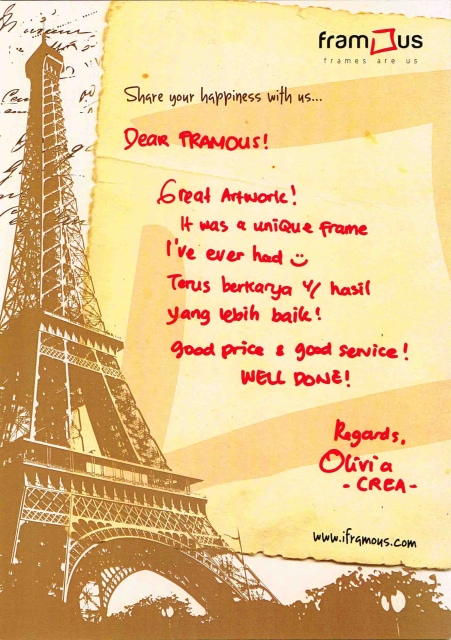 framous
frames are us
Share your happiness with us...
Dear FRAMOUS!
Great Artwork!
It was a unique frame
I've ever had
Terus berkarya y/ hasil
yang lebih baik!
good price & good service!
WELL DONE!
Regards,
Olivia
- CREA -
www.iframous.com